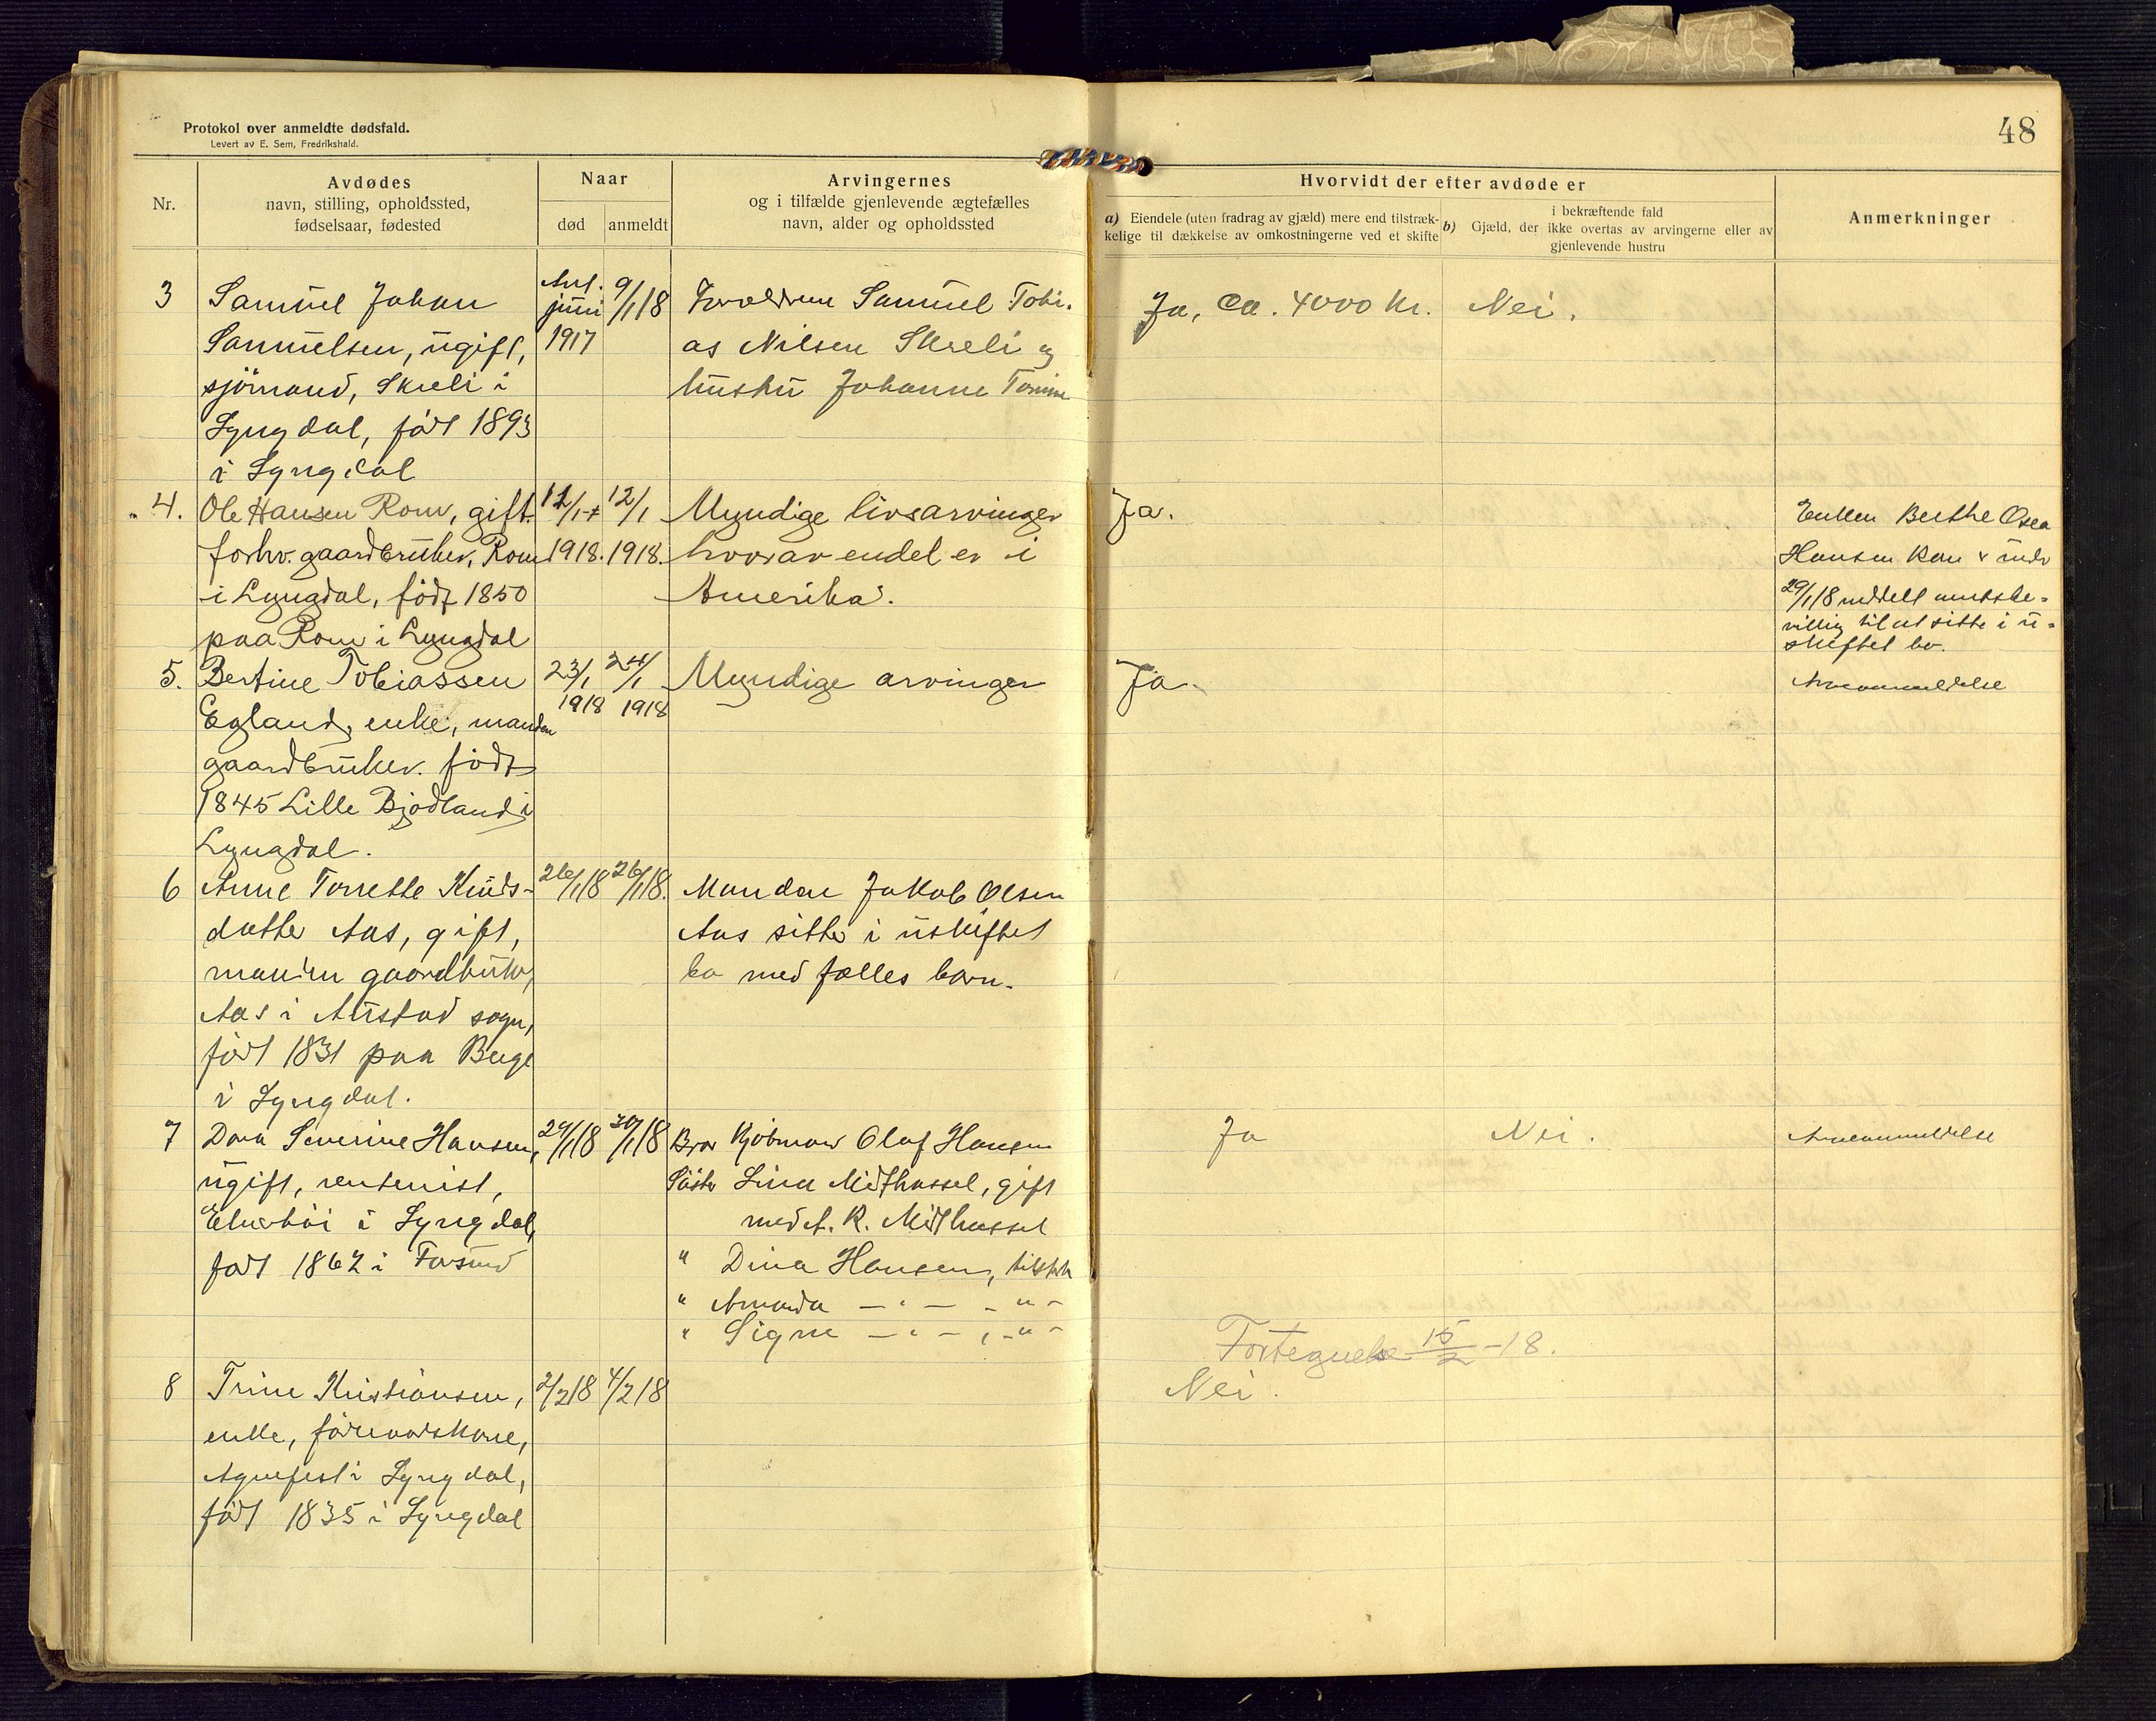 Protokol over anmeldte dødsfald.
Levert av E. Sem, Fredrikshald.
48
Nr.
Avdødes
navn, stilling, opholdssted,
fødselsaar, fødested
Naar
død
anmeldt
Arvingernes
og i tilfælde gjenlevende ægtefælles
navn, alder og opholdssted
Hvorvidt der efter avdøde er
a) Eiendele (uten fradrag av gjæld) mere end tilstræk-
kelige til dækkelse av omkostningerne ved et skifte
i bekræftende fald
b) Gjæld, der ikke overtas av arvingerne eller av
gjenlevende hustru
Anmerkninger
3
Samuel Johan
Samuelsen, ugift,
sjömand, Skreli i
Lyngdal, födt 1893
i Lyngdal
Ant.
juni
1917
9/1 18
Forældrene Samuel Tobi.
as Nilsen Skreli og
hustru Johanne Tomine
Ja, ca. 4000 kr.
Nei.
4.
Ole Hansen Rom, gift.
forhv. gaardbruker, Rom
i Lyngdal, födt 1850
paa Rom i Lyngdal
12/1
1918.
12/1
1918.
Myndige livsarvinger
hvorav endel er i
Amerika.
Ja.
Enken Berthe Osea
Hansen Rom er under
29/1 18 meddelt amtsbe-
villing til at sitte i u-
skiftet bo.
5.
Bertine Tobiassen
Egland, enke, manden
gaardbruker. födt
1845 Lille Bjodland i
Lyngdal.
23/1
1918
24/1
1918
Myndige arvinger
Ja.
Arveanmeldelse
6
Anne Torrette Knuds-
datter Aas, gift,
manden gaardbruker,
Aas i Austad sogn,
födt 1831 paa Berge
i Lyngdal.
26/1 18
26/1 18.
Manden Jakob Olsen
Aas sitter i uskiftet
bo med fælles barn.
7
Dora Severine Hansen,
ugift, rentenist,
i Lyngdal,
födt 1862 i Farsund
29/1 18
30/1 18
Bror Kjöbmand Olaf Hansen
Söster Lina Midthassel, gift
med A. R. Midthassel
" Dina Hansen,
" Amanda — " — - " -
" Signe — " — , - " -
Ja
Nei.
Arveanmeldelse
Fortegnelse 15/2 - 18.
8
Trine Kristiansen,
enke, föderaadskone,
Agnefest i Lyngdal,
födt 1835 i Lyngdal
2/2 18
4/2 18
Nei.